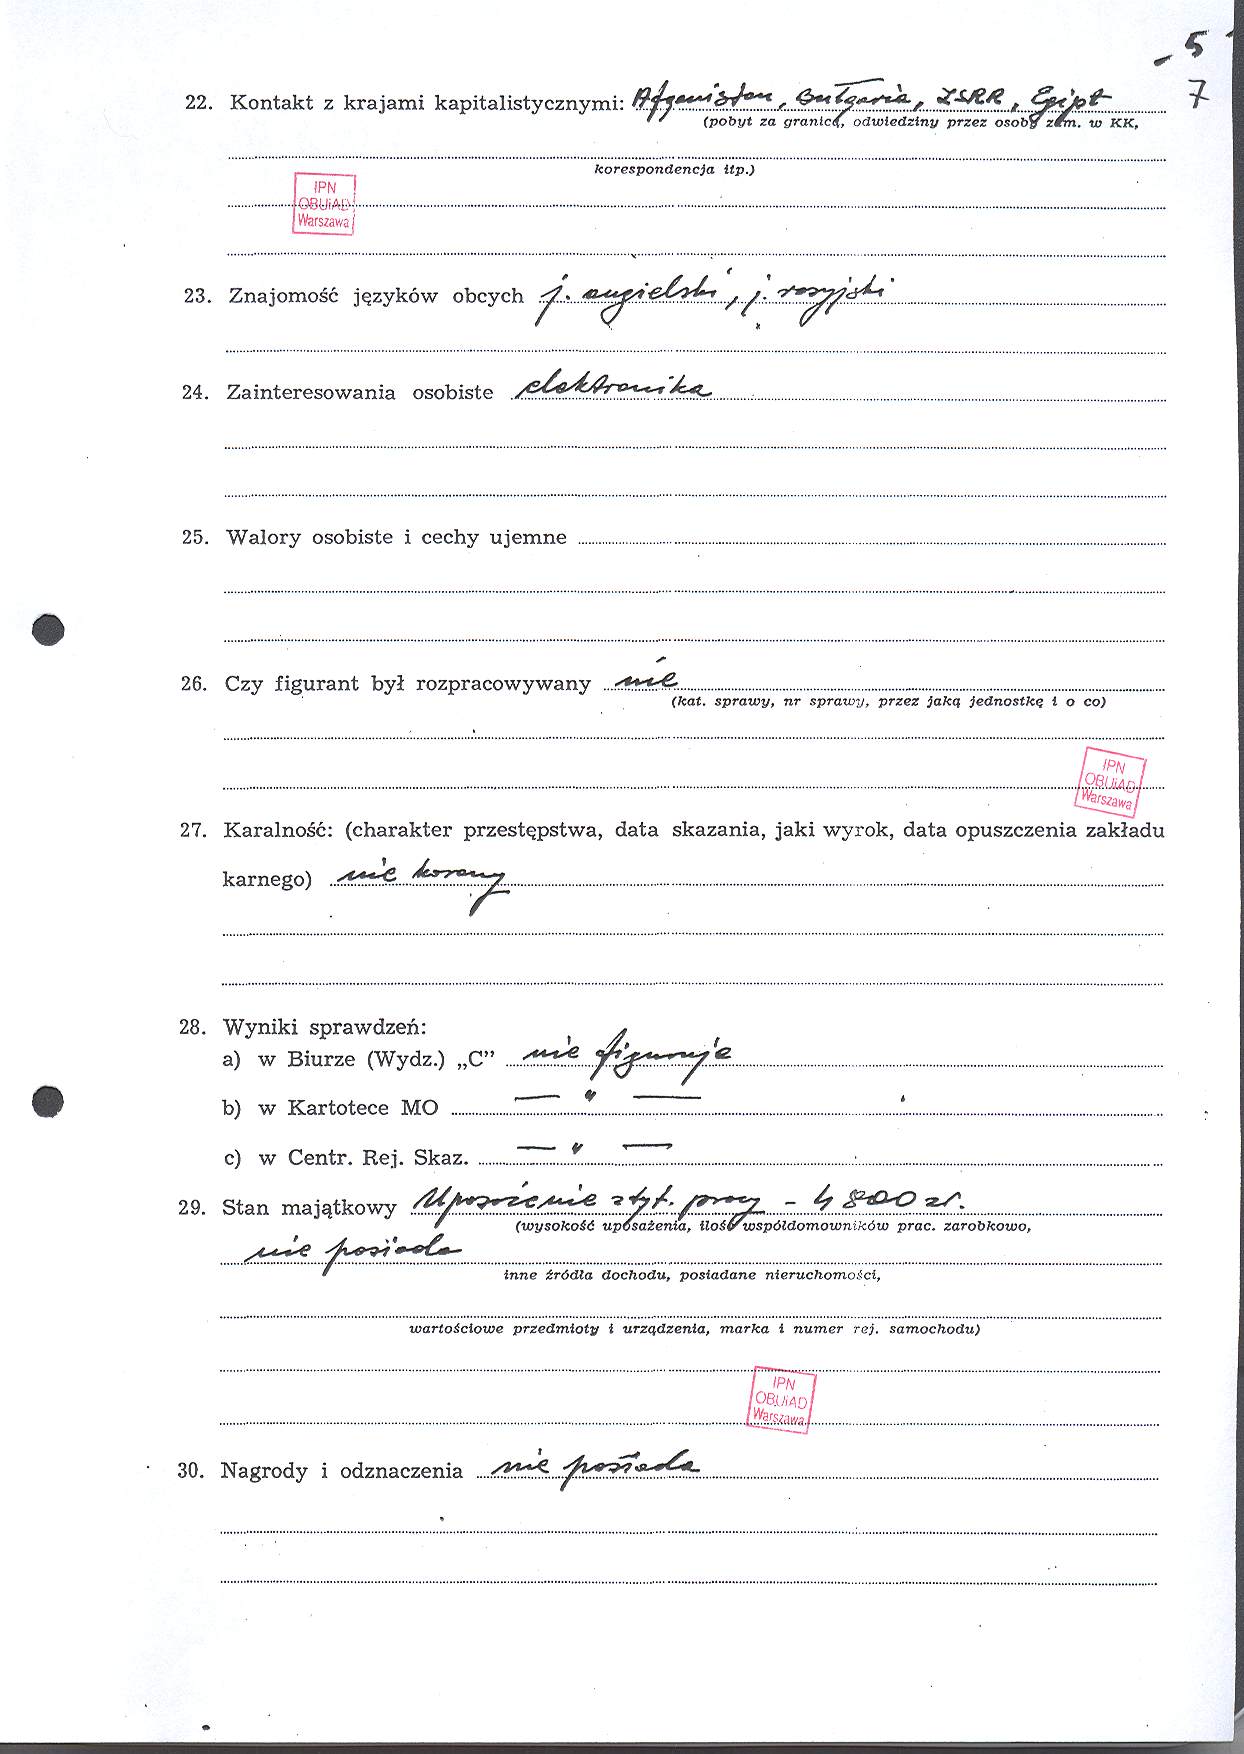 - 5
7
22. Kontakt z krajami kapitalistycznymi: Afganistan, Bułgaria, ZSRR, Egipt
(pobyt za granicą, odwiedziny przez osoby zam. w KK,
korespondencja itp.)
IPN
OBUiAD
Warszawa
23. Znajomość języków obcych j. angielski, j. rosyjski
24. Zainteresowania osobiste elektronika
25. Walory osobiste i cechy ujemne
26. Czy figurant był rozpracowywany nie
(kat. sprawy, nr sprawy, przez jaką jednostkę i o co)
IPN
OBUiAD
Warszawa
27. Karalność: (charakter przestępstwa, data skazania, jaki wyrok, data opuszczenia zakładu
karnego) nie karany
28. Wyniki sprawdzeń:
a) w Biurze (Wydz.) „C” nie figuruje
b) w Kartotece MO — " —
c) w Centr. Rej. Skaz. — " —
29. Stan majątkowy Uposażenie z tyt. pracy - 4 800 zł.
(wysokość uposażenia, ilość współdomowników prac. zarobkowo,
nie posiada
inne źródła dochodu, posiadane nieruchomości,
wartościowe przedmioty i urządzenia, marka i numer rej. samochodu)
IPN
OBUiAD
Warszawa
30. Nagrody i odznaczenia nie posiada